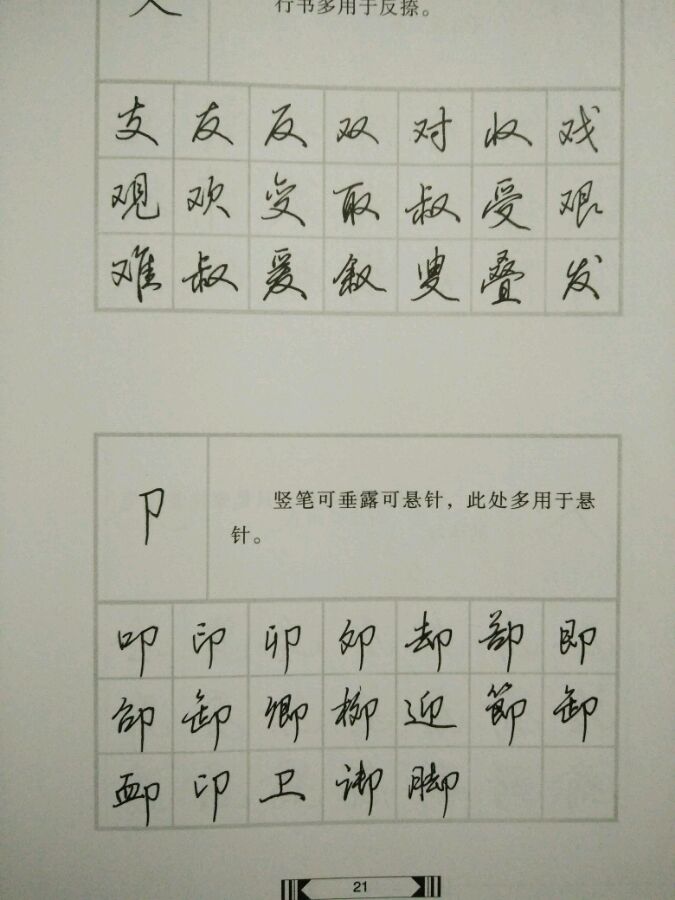 又
行书多用于反捺。
支友反双对收戏
观欢变取叔受艰
难叔爰叙叟叠发
卩
竖笔可垂露可悬针，此处多用于悬
针。
叩印卯却即
卸卿柳迎節卸
卹印卫御脚
21